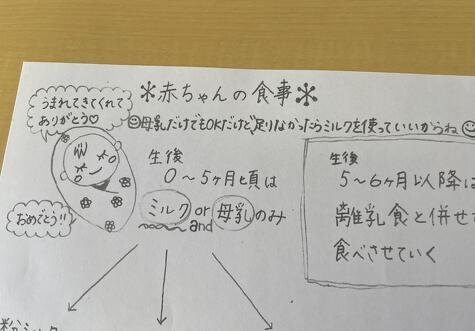 *赤ちゃんの食事*
うまれてきてくれて
ありがとう♡
母乳だけでもOKだけど、足りなかったらミルクを使っていいからね
生後
0〜5ヶ月頃は
ミルク or 母乳のみ
and
おめでとう!!
生後
5〜6ヶ月以降は
離乳食と併せて
食べさせていく
粉ミルク